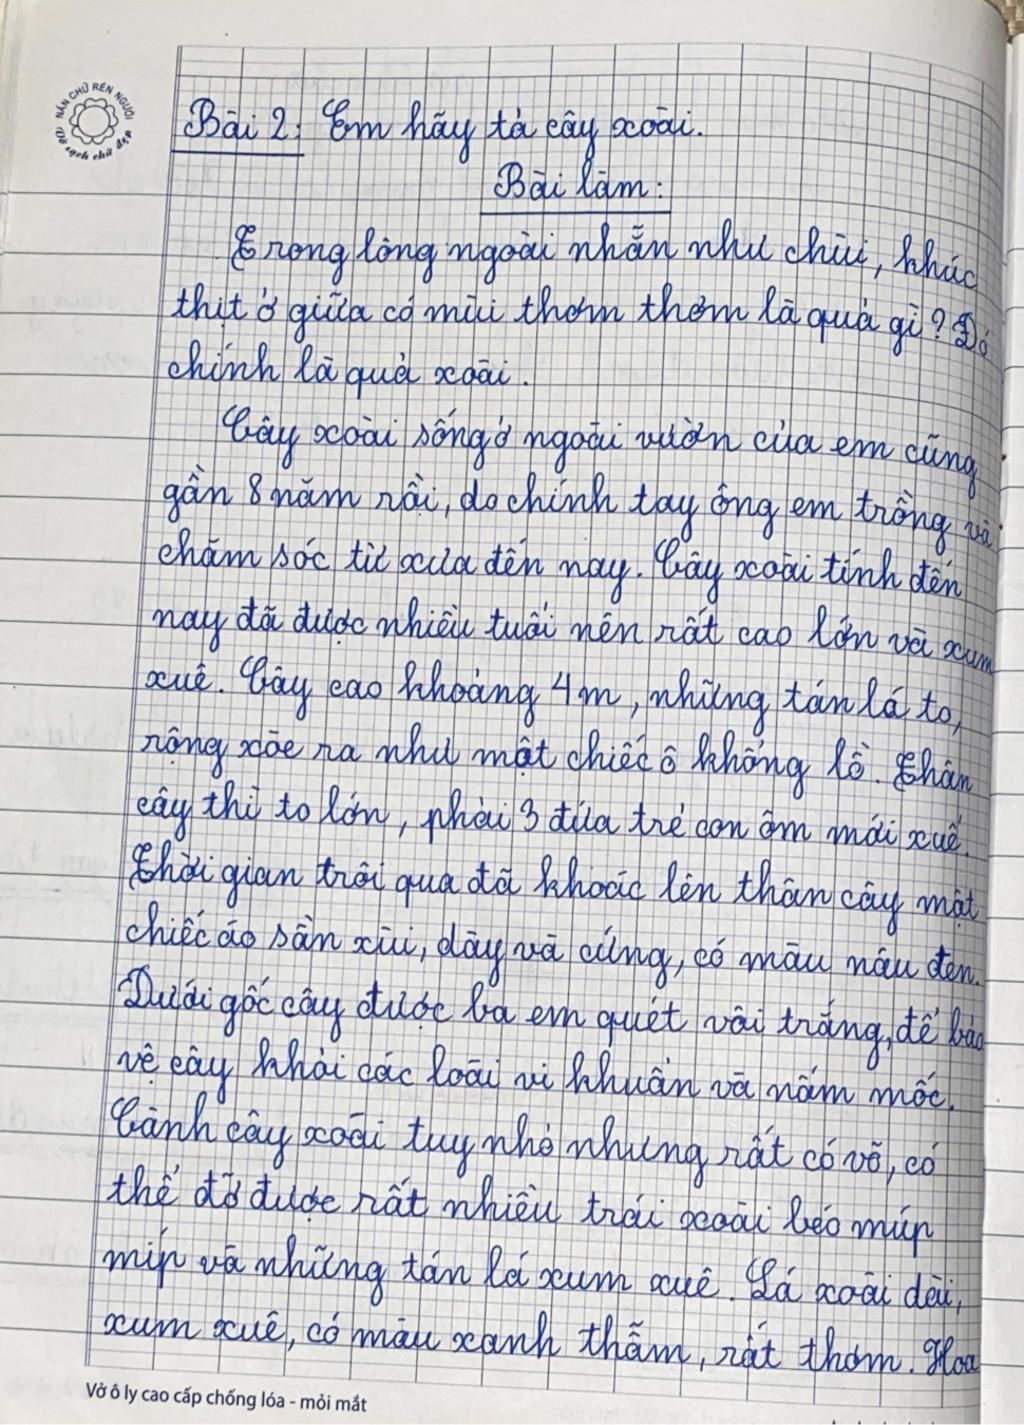 NẮN CHỮ RÈN NGƯỜI
Vở sạch chữ đẹp
Bài 2: Em hãy tả cây xoài.
Bài làm:
Trong lòng ngoài nhẵn như chùi, khúc
thịt ở giữa có mùi thơm thơm là quả gì? Đó
chính là quả xoài.
Cây xoài sống ở ngoài vườn của em cũng
gần 8 năm rồi, do chính tay ông em trồng và
chăm sóc từ xưa đến nay. Cây xoài tính đến
nay đã được nhiều tuổi nên rất cao lớn và xum
xuê. Cây cao khoảng 4m, những tán lá to,
rộng xòe ra như một chiếc ô khổng lồ. Thân
cây thì to lớn, phải 3 đứa trẻ con ôm mới xuể.
Thời gian trôi qua đã khoác lên thân cây một
chiếc áo sần xùi, dày và cứng, có màu nâu đen.
Dưới gốc cây được ba em quét vôi trắng, để bảo
vệ cây khỏi các loài vi khuẩn và nấm mốc.
Cành cây xoài tuy nhỏ nhưng rất có võ, có
thể đỡ được rất nhiều trái xoài béo múp
míp và những tán lá xum xuê. Lá xoài dài,
xum xuê, có màu xanh thẫm, rất thơm. Hoa
Vở ô ly cao cấp chống lóa - mỏi mắt